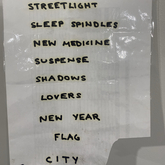 STREETLIGHT
SLEEP SPINDLES
NEW MEDICINE
SUSPENSE
SHADOWS
LOVERS
NEW YEAR
FLAG
CITY